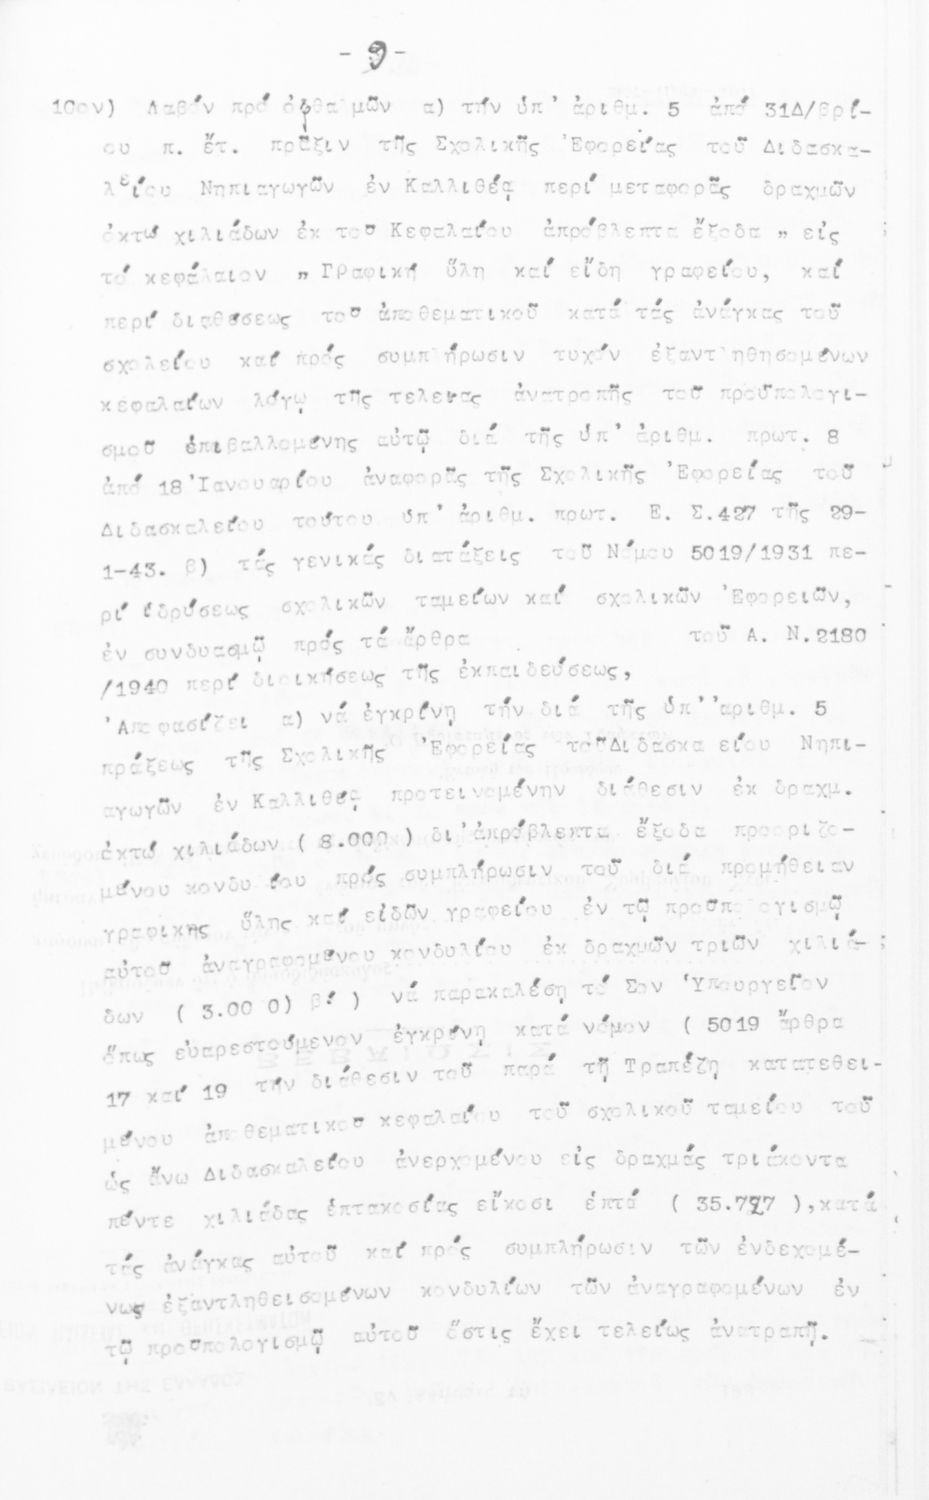 - 9 -
10ον) Λαβόν πρό ὀφθαλμῶν α) τήν ὑπ' ἀριθμ. 5 ἀπό 31Δ/βρί-
ου π. ἔτ. πρᾶξιν τῆς Σχολικῆς Ἐφορείας τοῦ Διδασκα-
λείου Νηπιαγωγῶν ἐν Καλλιθέᾳ περί μεταφορᾶς δραχμῶν
ὀκτώ χιλιάδων ἐκ τοῦ Κεφαλαίου ἀπρόβλεπτα ἔξοδα " εἰς
τό κεφάλαιον " Γραφική ὕλη καί εἴδη γραφείου, καί
περί διαθέσεως τοῦ ἀποθεματικοῦ κατά τάς ἀνάγκας τοῦ
σχολείου καί πρός συμπλήρωσιν τυχόν ἐξαντληθησομένων
κεφαλαίων λόγῳ τῆς τελείας ἀνατροπῆς τοῦ προϋπολογι-
σμοῦ ἐπιβαλλομένης αὐτῷ διά τῆς ὑπ' ἀριθμ. πρωτ. 8
ἀπό 18 Ἰανουαρίου ἀναφορᾶς τῆς Σχολικῆς Ἐφορείας τοῦ
Διδασκαλείου τούτου ὑπ' ἀριθμ. πρωτ. Ε. Σ.427 τῆς 29-
1-43. β) τάς γενικάς διατάξεις τοῦ Νόμου 5019/1931 πε-
ρί ἱδρύσεως σχολικῶν ταμείων καί σχολικῶν Ἐφορειῶν,
ἐν συνδυασμῷ πρός τά ἄρθρα τοῦ Α. Ν.2180
/1940 περί διοικήσεως τῆς ἐκπαιδεύσεως,
Ἀποφασίζει α) νά ἐγκρίνῃ τήν διά τῆς ὑπ' ἀριθμ. 5
πράξεως τῆς Σχολικῆς Ἐφορείας τοῦΔιδασκα είου Νηπι-
αγωγῶν ἐν Καλλιθέᾳ προτεινομένην διάθεσιν ἐκ δραχμ.
ὀκτώ χιλιάδων ( 8.000 ) δι'ἀπρόβλεπτα ἔξοδα προοριζο-
μένου κονδυ ίου πρός συμπλήρωσιν τοῦ διά προμήθειαν
γραφικῆς ὕλης καί εἰδῶν γραφείου ἐν τῷ προϋπολογισμῷ
αὐτοῦ ἀναγραφομένου κονδυλίου ἐκ δραχμῶν τριῶν χιλιά-
δων ( 3.00 0) β! ) νά παρακαλέσῃ τό Σον Ὑπουργεῖον
ὅπως εὐαρεστούμενον ἐγκρίνῃ κατά νόμον ( 5019 ἄρθρα
17 καί 19 τήν διάθεσιν τοῦ παρά τῇ Τραπέζῃ κατατεθει-
μένου ἀποθεματικοῦ κεφαλαίου τοῦ σχολικοῦ ταμείου τοῦ
ὡς ἄνω Διδασκαλείου ἀνερχομένου εἰς δραχμάς τριάκοντα
πέντε χιλιάδας ἑπτακοσίας εἴκοσι ἑπτά ( 35.727 ),κατά
τάς ἀνάγκας αὐτοῦ καί πρός συμπλήρωσιν τῶν ἐνδεχομέ-
νως ἐξαντληθεισομένων κονδυλίων τῶν ἀναγραφομένων ἐν
τῷ προϋπολογισμῷ αὐτοῦ ὅστις ἔχει τελείως ἀνατραπῆ.